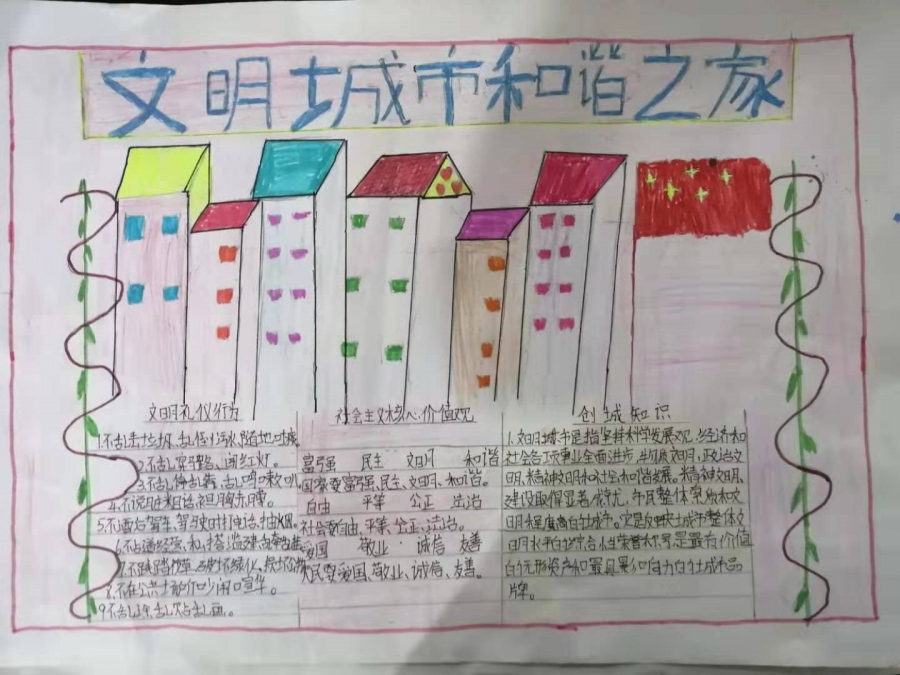 文明城市和谐之家
文明礼仪行为
1.不乱丢垃圾、乱倒污水、随地吐痰
2.不乱穿马路、闯红灯。
3.不乱停乱靠、乱鸣喇叭
4.不说脏粗话和袒胸赤膊。
5.不酒后驾车、驾驶时打电话、抽烟。
6.不占道经营、私搭滥建
7.不践踏
8.不在公共场所吵闹喧华。
9.不乱涂、乱贴、乱画。
社会主义核心价值观
富强 民主 文明 和谐
国家要富强、民主、文明、和谐。
自由 平等 公正 法治
社会要自由、平等、公正、法治。
爱国 敬业 诚信 友善
人民要爱国、敬业、诚信、友善。
创城知识
1.文明城市是指坚持科学发展观,经济和
社会各项事业全面进步,物质文明,政治文
明,精神文明和社会和谐发展,精神文明,
建设取得显著成就,市民整体素质和文
明程度高的城市。它是反映城市整体文
明水平的综合性荣誉称号是最有价值
的无形资产和最具影响力的城市品
牌。